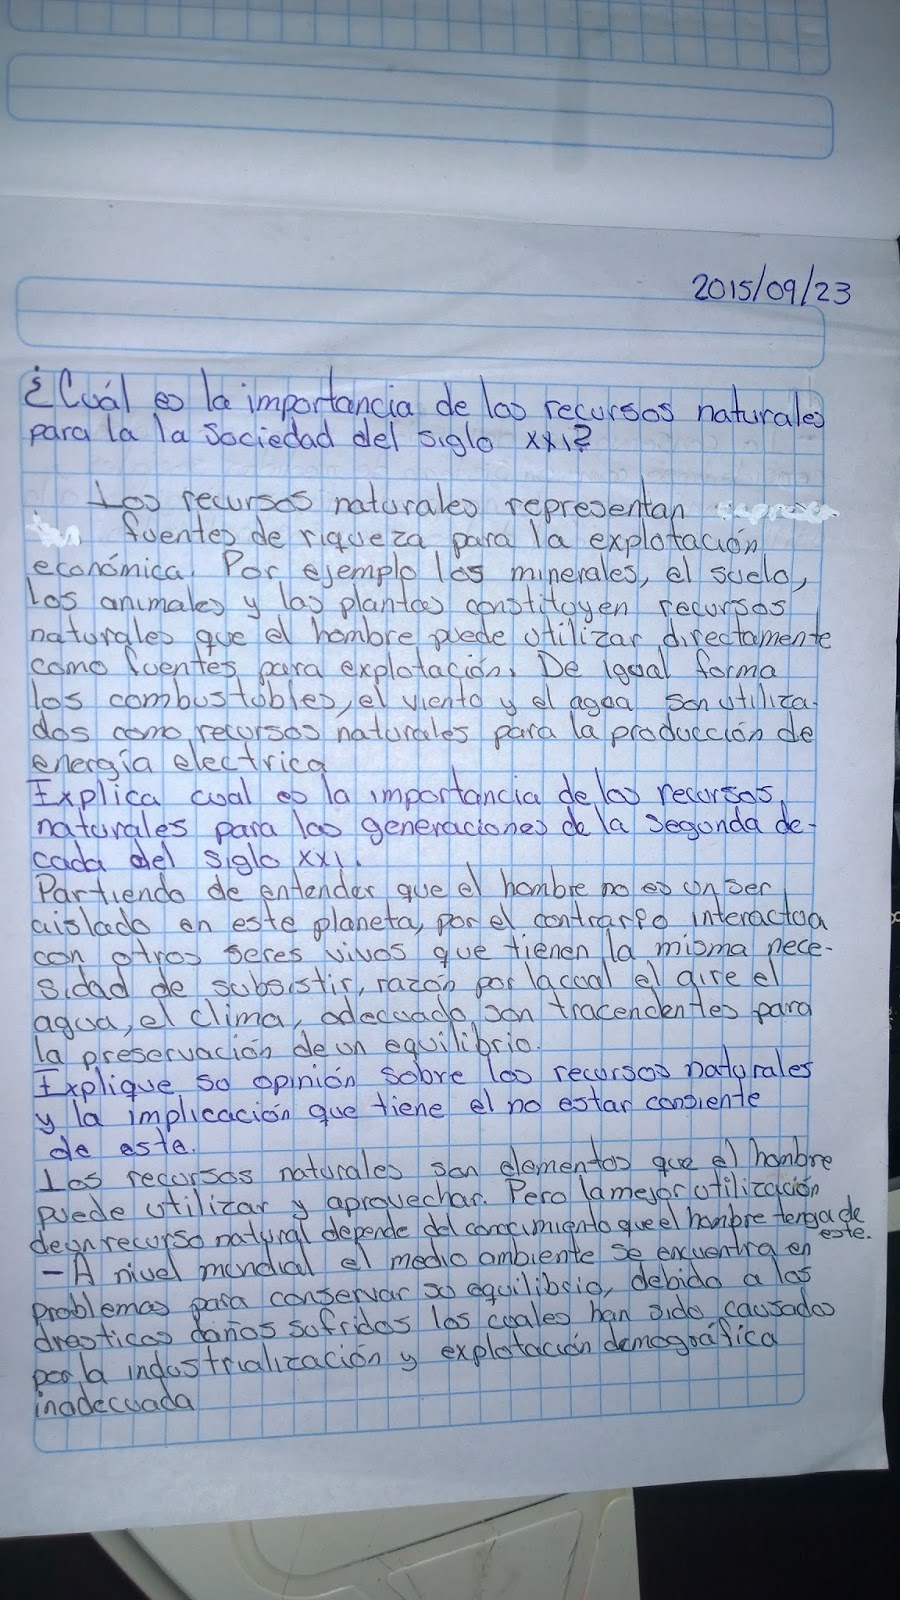 2015/09/23
¿Cuál es la importancia de los recursos naturales
para la la Sociedad del siglo XXI?
Los recursos naturales representan
fuentes de riqueza para la explotación
económica. Por ejemplo los minerales, el suelo,
los animales y las plantas constituyen recursos
naturales que el hombre puede utilizar directamente
como fuentes para explotación. De igual forma
los combustobles, el viento y el agaa son utiliza-
dos como recursos naturales para la producción de
energía electrica
Explica cual es la importancia de los recursos
naturales para las generaciones de la segunda de-
cada del siglo XXI.
Partiendo de entender que el hombre no es un ser
aislado en este planeta, por el contrario interactua
con otros seres vivos que tienen la misma nece-
sidad de subsistir, razón por la cual el aire el
agua, el clima, adecuado son tracendentes para
la preservación de un equilibrio.
Explique so opinión sobre los recursos naturales
y la implicación que tiene el no estar consiente
de este.
Los recursos naturales son elementos que el hombre
puede utilizar y aprovechar. Pero la mejor utilización
de un recurso natural depende del conocimiento que el hombre tenga de
este.
- A nivel mundial el medio ambiente se encuentra en
problemas para conservar so equilibrio, debido a los
drasticos daños sufridos los cuales han sido causados
por la industrialización y explotación demográfica
inadecuada